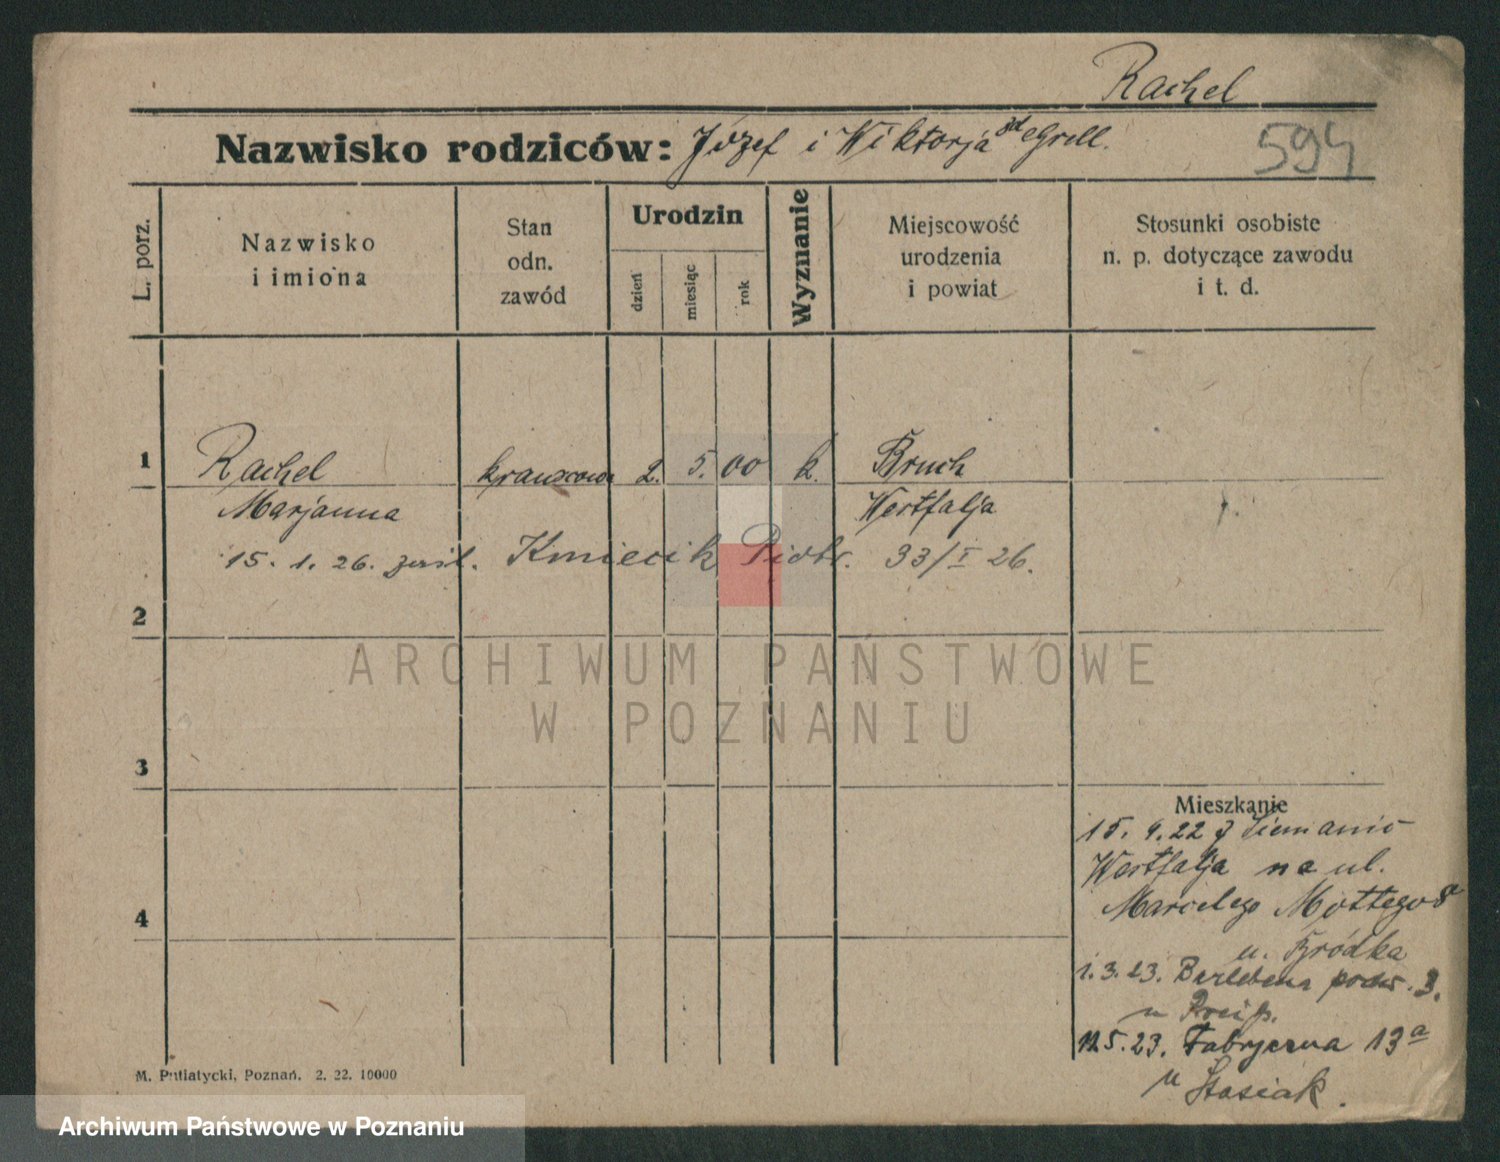 Rachel
Nazwisko rodziców: Józef i Wiktorja zd Grell.
594
L. porz.
Nazwisko
i imiona
Stan
odn.
zawód
Urodzin
dzień
miesiąc
rok
Wyznanie
Miejscowość
urodzenia
i powiat
Stosunki osobiste
n. p. dotyczące zawodu
i t. d.
1
Rachel
krawcowa
2.
5.
00
k.
Bruch
Marjanna
Westfalja
15. 1. 26. Kmiecik Piotr. 33/I 26.
2
3
4
ARCHIWUM PAŃSTWOWE
W POZNANIU
Mieszkanie
15. 9. 22 z
Westfalja na ul.
Marcelego Mottego 8
u. Bródka
1. 3. 23. podw. 3.
u
12.5.23. Fabryczna 13a
u Stasiak.
M. Putiatycki, Poznań. 2. 22. 10000
Archiwum Państwowe w Poznaniu